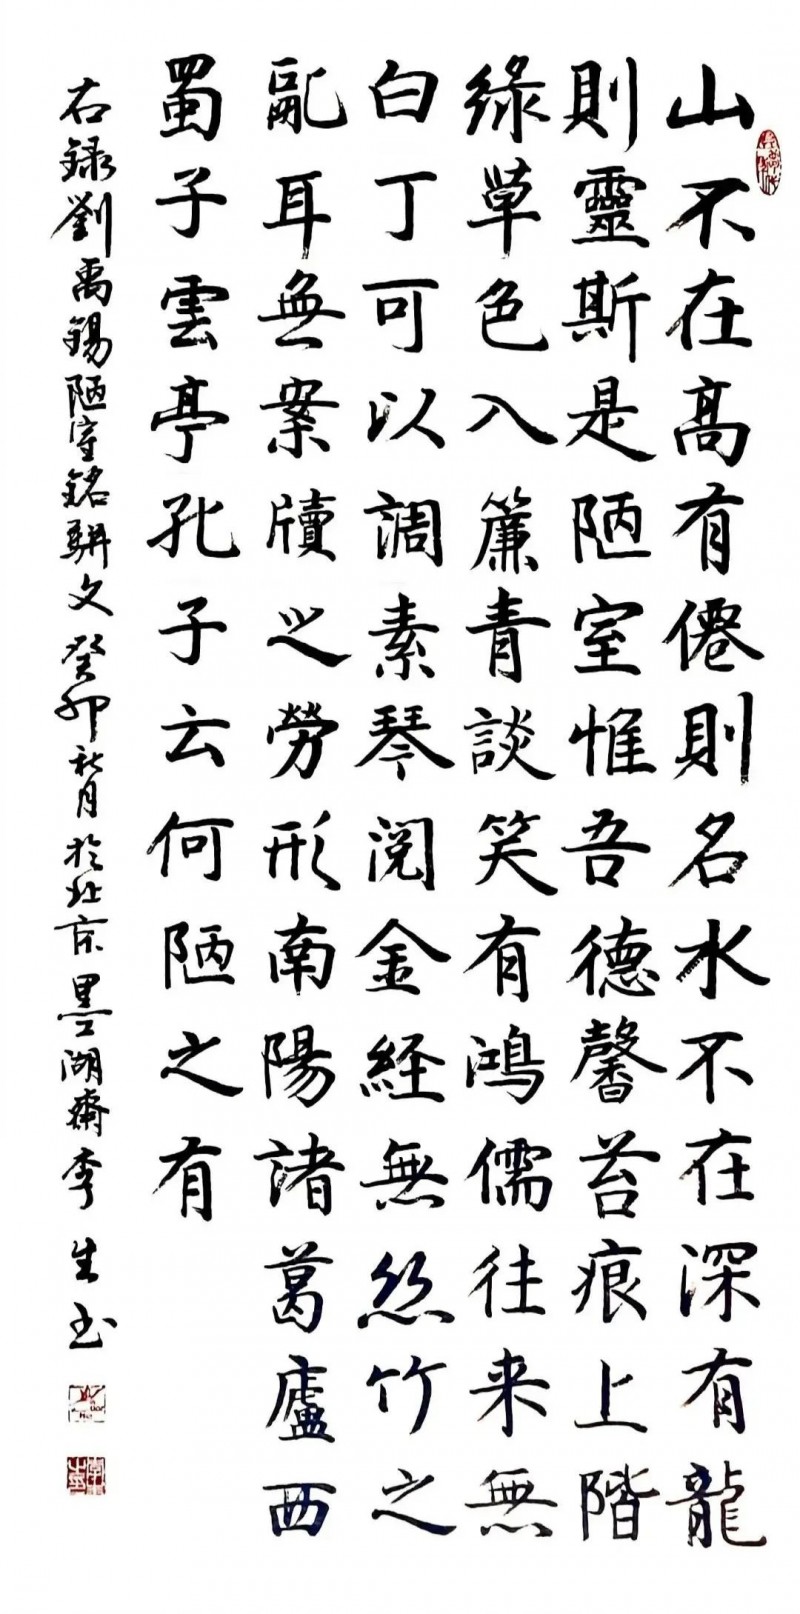 山不在高有僊則名水不在深有龍
則靈斯是陋室惟吾德馨苔痕上階
綠草色入簾青談笑有鴻儒往来無
白丁可以調素琴閱金経無丝竹之
亂耳無案牘之勞形南陽諸葛廬西
蜀子雲亭孔子云何陋之有
右録劉禹錫陋室銘駢文癸卯秋月於北京墨湖齋李生书